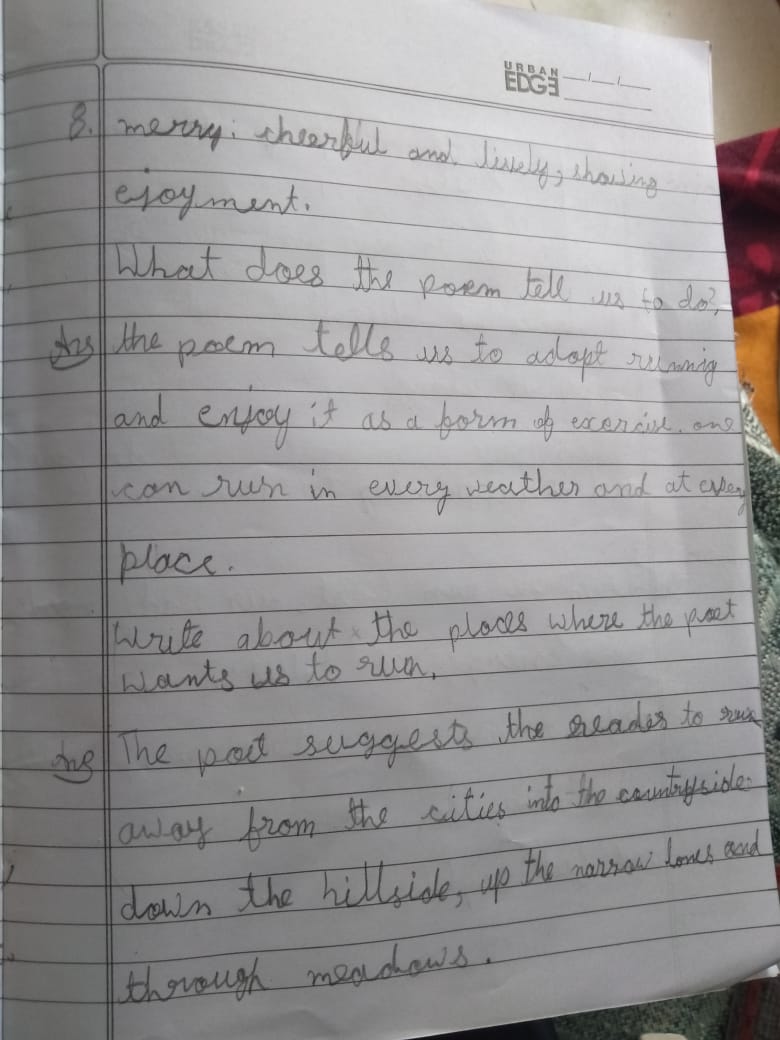 URBAN
EDGE
8. merry: cheerful and lively, showing
ejoyment.
What does the poem tell us to do?
Ans the poem tells us to adopt runnig
and enjoy it as a form of exercise. one
can run in every weather and at every
place.
Write about the places where the poet
wants us to run.
Ans The poet suggests the reader to run
away from the cities into the countryside.
down the hillside, up the narrow lanes and
through meadows.